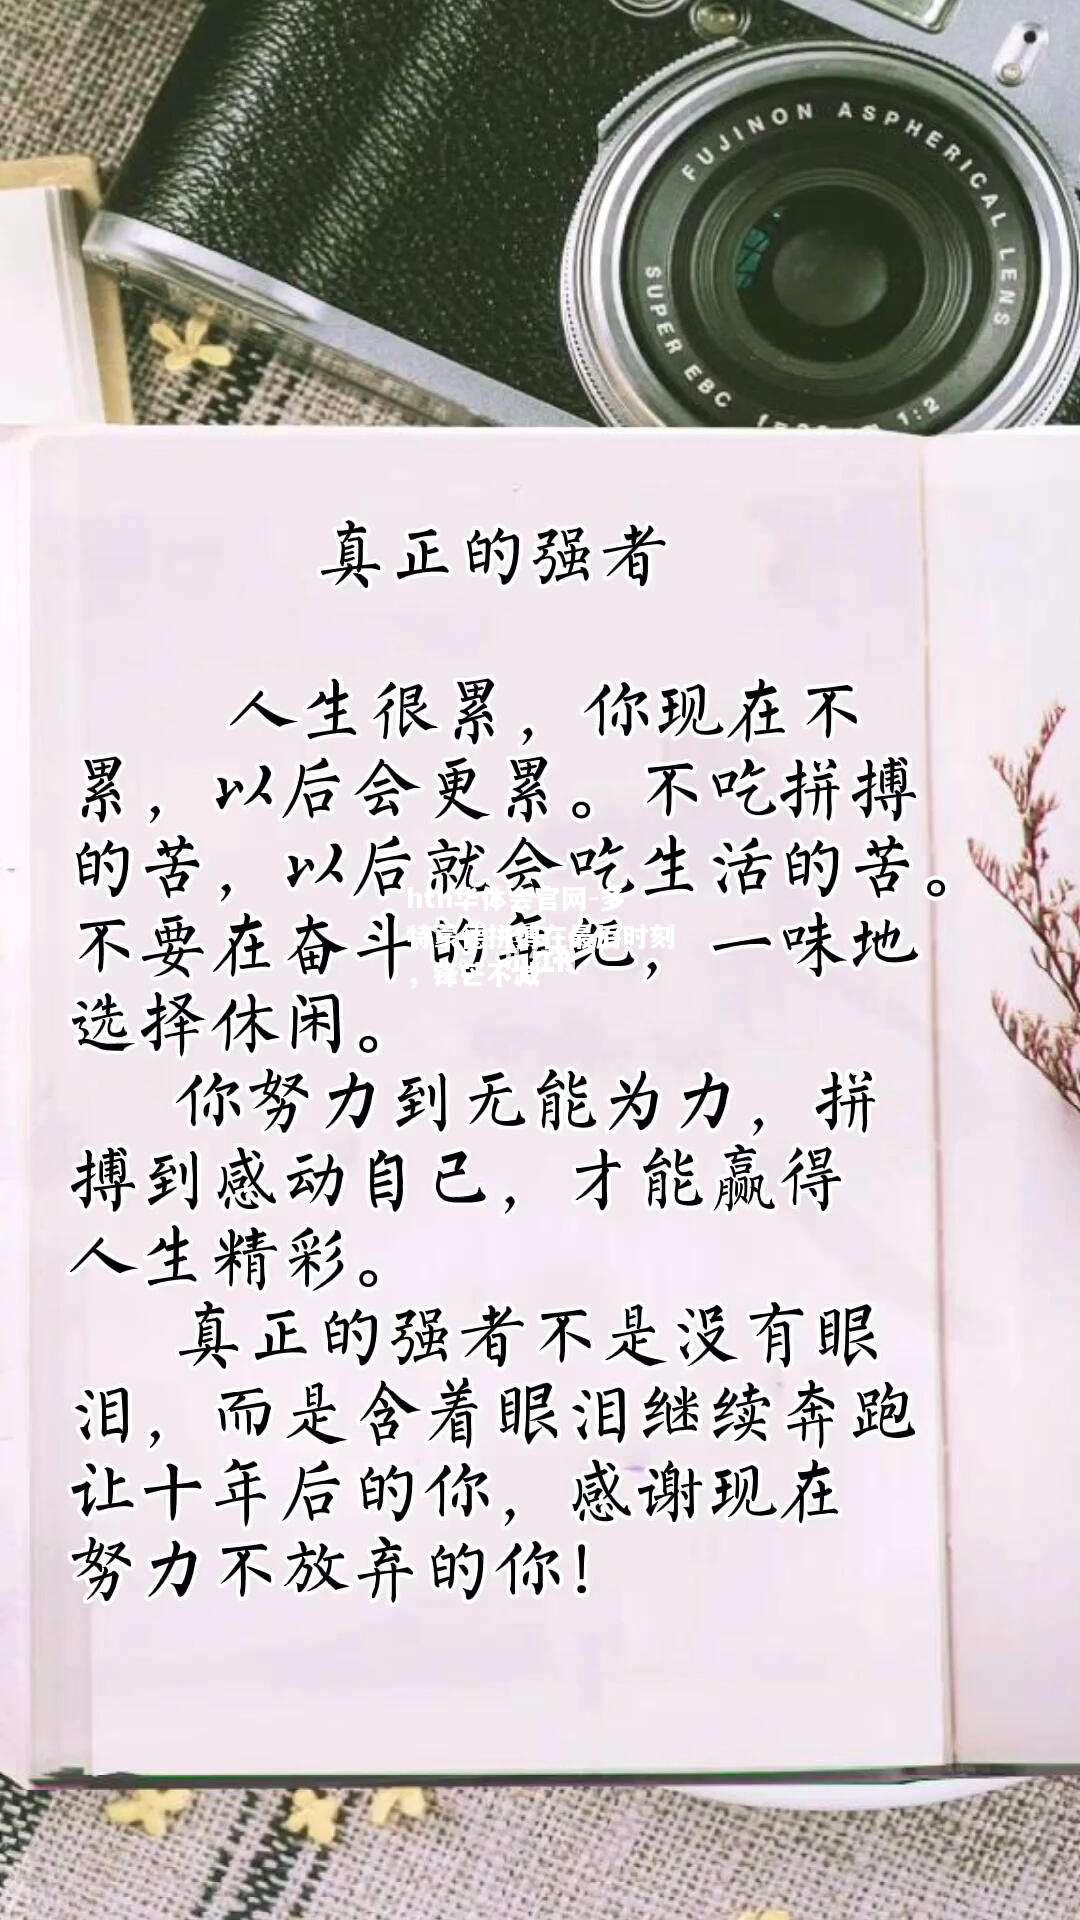 FUJINON ASPHERICAL LENS
SUPER EBC
1:2
真正的强者
人生很累，你现在不
累，以后会更累。不吃拼搏
的苦，以后就会吃生活的苦。
不要在奋斗的年纪，一味地
选择休闲。
你努力到无能为力，拼
搏到感动自己，才能赢得
人生精彩。
真正的强者不是没有眼
泪，而是含着眼泪继续奔跑
让十年后的你，感谢现在
努力不放弃的你！
hth华体会官网-多
特蒙德拼搏在最后时刻
，锋芒不减